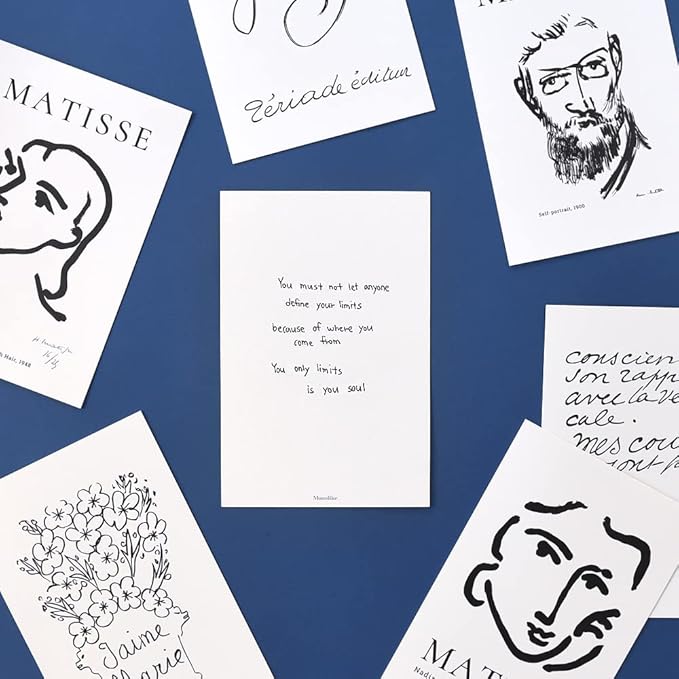 MATISSE
Tériade éditeur
Self-portrait, 1900
You must not let anyone
define your limits
because of where you
come from
You only limits
is you soul
Hair, 1948
conscien
son rapp
avec la vé
cale.
mes cou
ront p
J'aime
Marie
MAT
Nadi